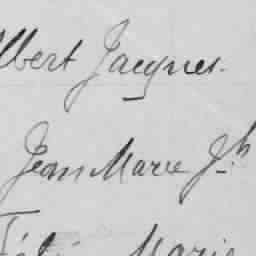 Albert Jacques.
Jean Marie Jh
Marie